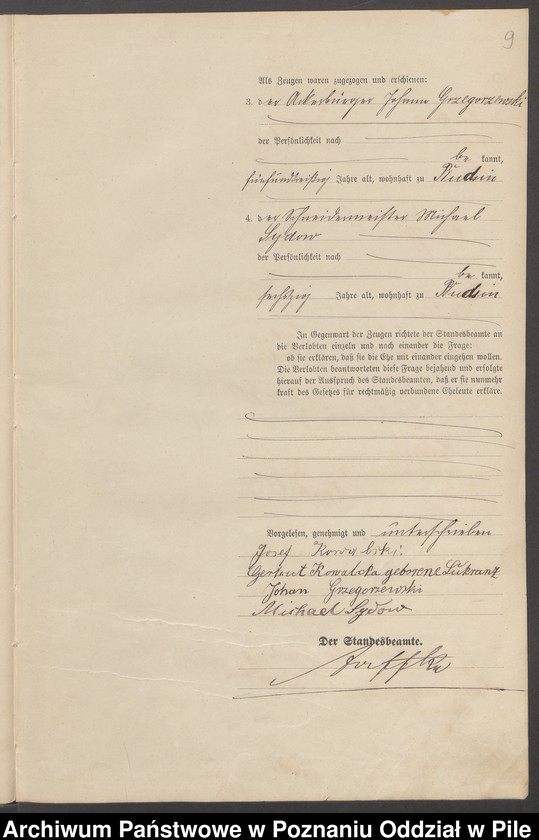 9
Als Zeugen waren zugezogen und erschienen:
3. der Ackerbürger Johann Grzegorzewski
der Persönlichkeit nach
be kannt,
fünfunddreißig Jahre alt, wohnhaft zu
4. der Schneidermeister Michael
Sydow
der Persönlichkeit nach
be kannt,
sechszig Jahre alt, wohnhaft zu
In Gegenwart der Zeugen richtete der Standesbeamte an
die Verlobten einzeln und nach einander die Frage:
ob sie erklären, daß sie die Ehe mit einander eingehen wollen.
Die Verlobten beantworteten diese Frage bejahend und erfolgte
hierauf der Ausspruch des Standesbeamten, daß er sie nunmehr
kraft des Gesetzes für rechtmäßig verbundene Eheleute erkläre.
Vorgelesen, genehmigt und unterschrieben
Josef Kowalski.
Gertrut Kowalska geborene Lukranz
Johan Grzegorzewski
Michael Sydow
Der Standesbeamte.
Archiwum Państwowe w Poznaniu Oddział w Pile